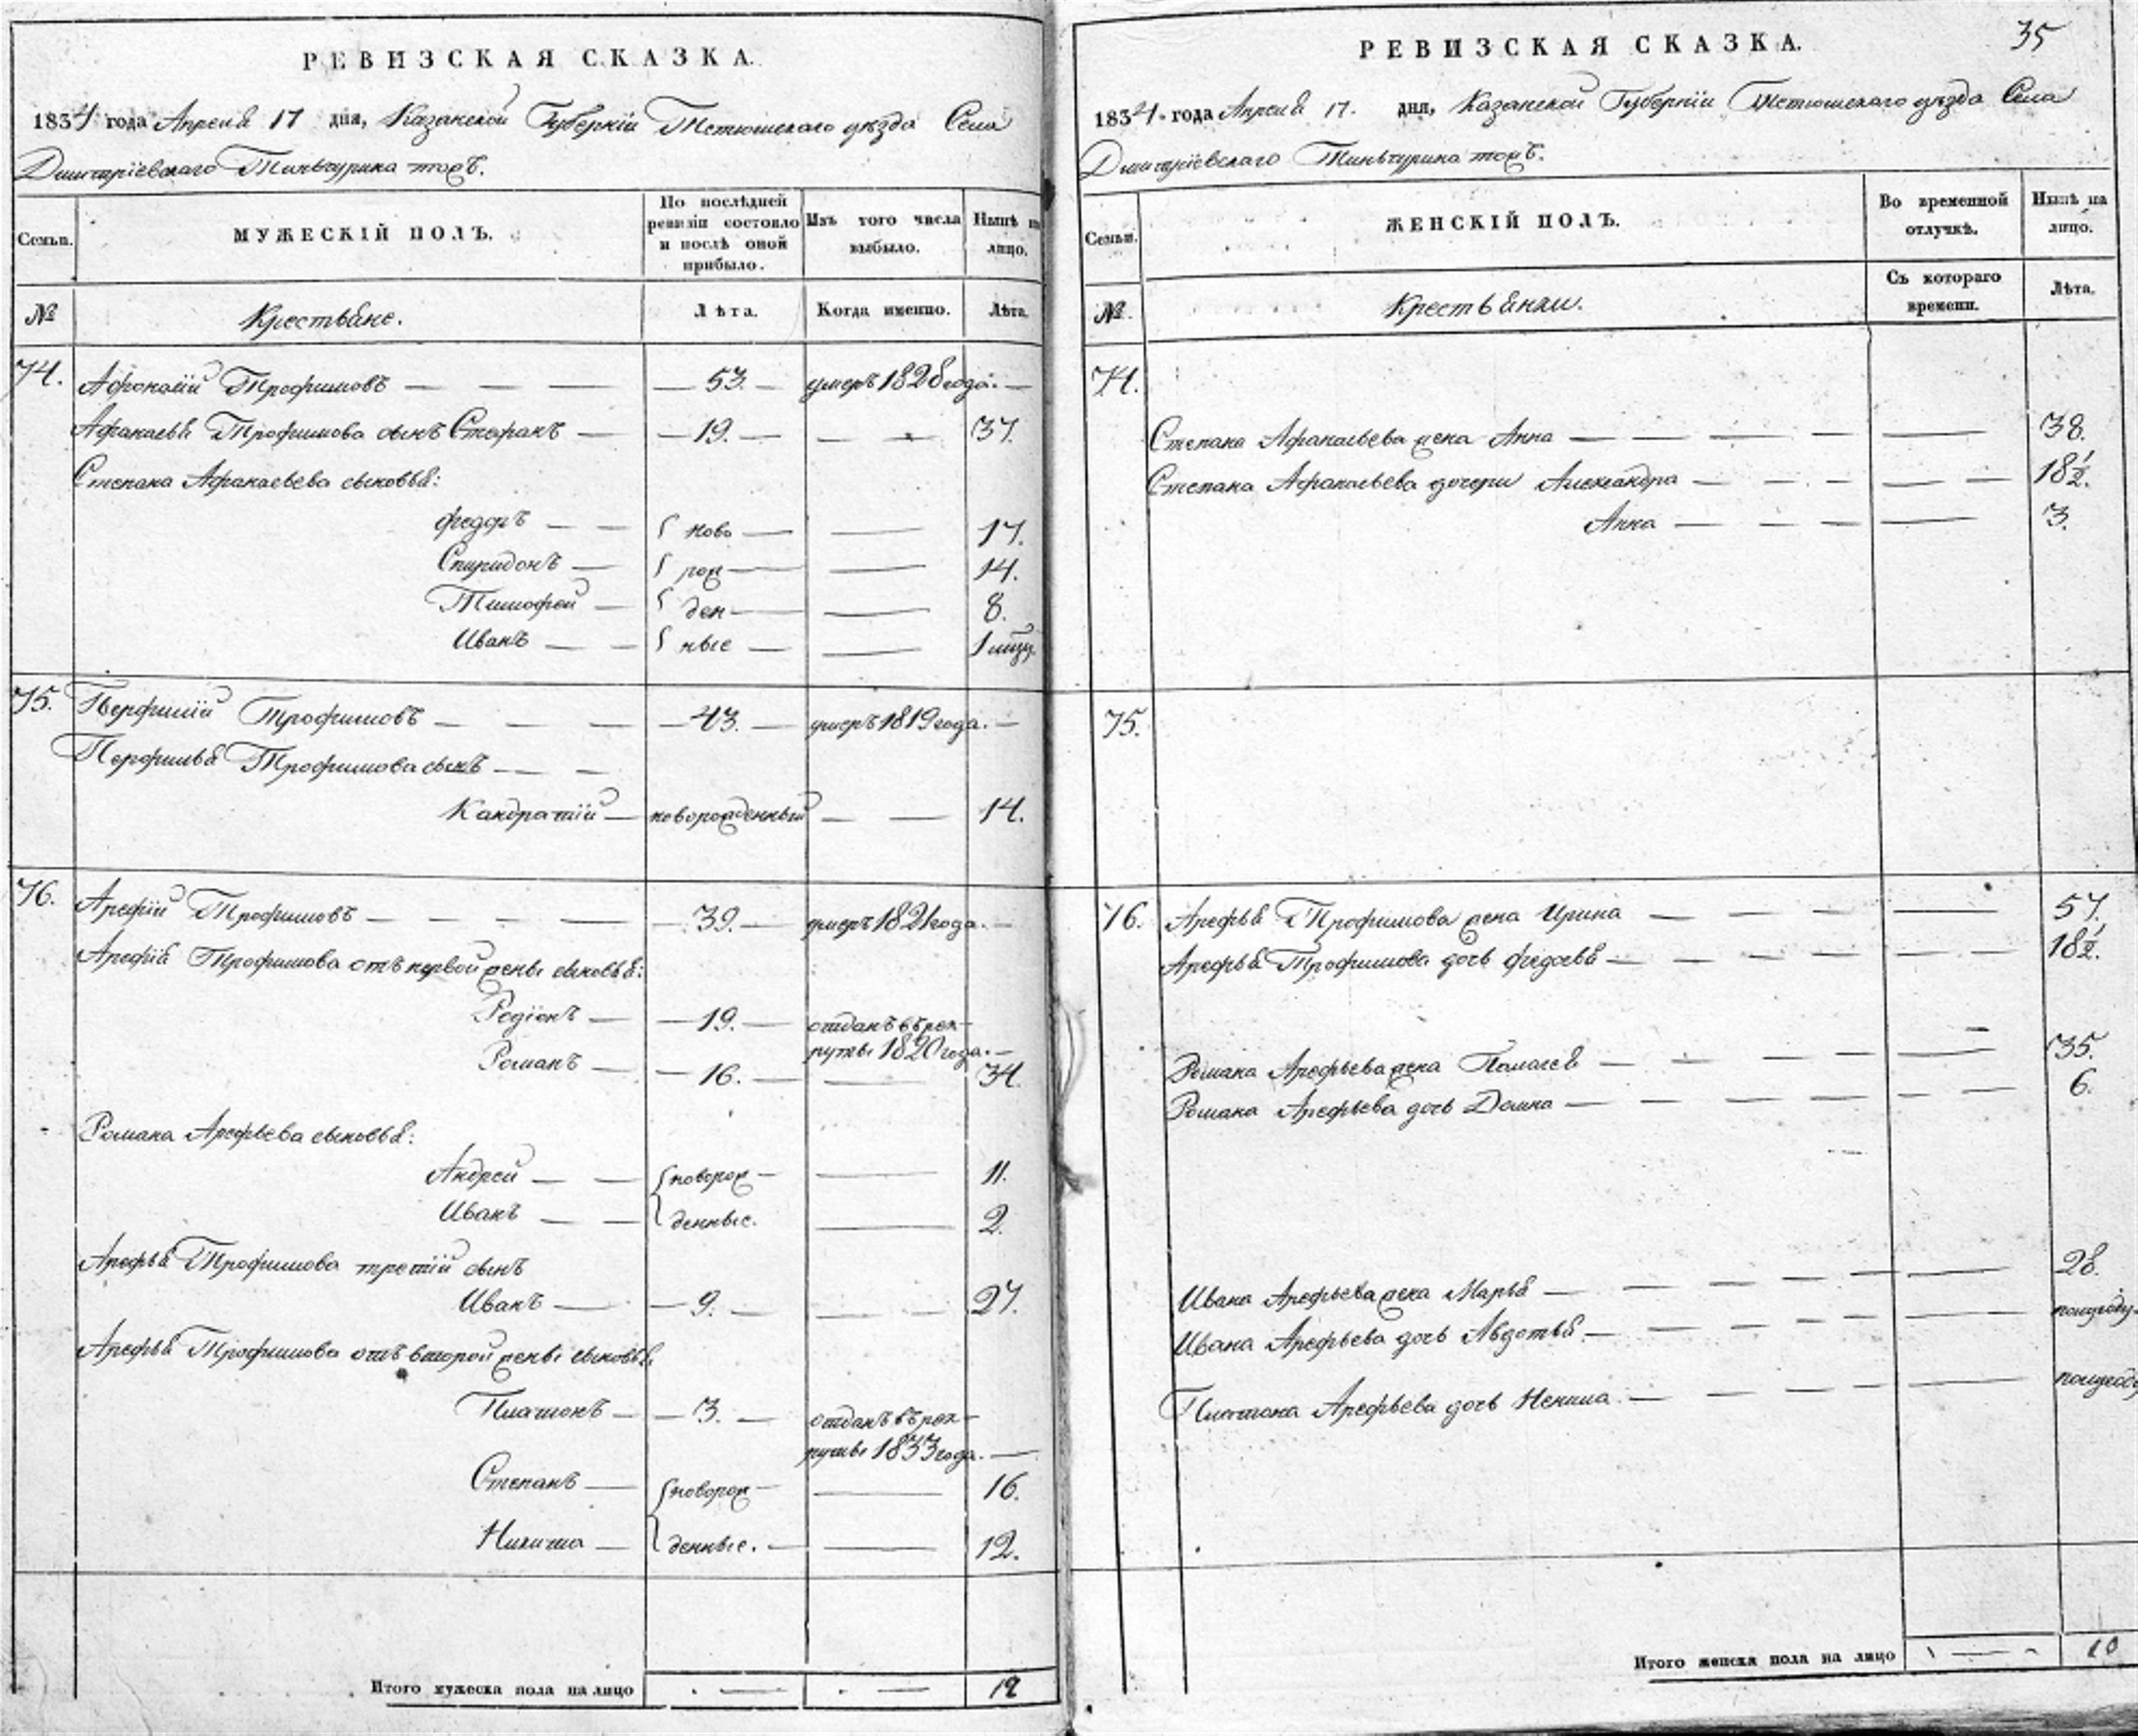 РЕВИЗСКАЯ СКАЗКА.
1834 года Апреля 17 дня, Казанской Губернїи Тетюшскаго уѣзда Села
Дмитрїевскаго Тиньчурина тожъ.
Семьи.
МУЖЕСКІЙ ПОЛЪ.
По послѣдней ревизіи состояло и послѣ оной прибыло.
Изъ того числа выбыло.
Нынѣ на лицо.
№
Крестьяне.
Лѣта.
Когда именно.
Лѣта.
74. Афонасїй Трофимовъ — — — 53. — умеръ 1828 года. —
Афанасья Трофимова сынъ Стефанъ — 19. — — — 37.
Степана Афанасьева сыновья:
Федоръ — — ново — — 17.
Спиридонъ — рож — — 14.
Тимофей — ден — — 8.
Иванъ — — ные — — 1
75. Перфилїй Трофимовъ — — — 43. — умеръ 1819 года. —
Перфилья Трофимова сынъ — —
Кандратїй — новорожденный — — 14.
76. Арефїй Трофимовъ — — — 39. — умеръ 1821 года. —
Арефїя Трофимова отъ первой жены сыновья:
Родїонъ — 19. — отданъ въ рек-
руты 1820 года. —
Романъ — 16. — — 34.
Романа Арефьева сыновья:
Андрей — — новорож — — 11.
Иванъ — — денные. — 2.
Арефья Трофимова третїй сынъ
Иванъ — 9. — — — 27.
Арефья Трофимова отъ второй жены сыновья:
Платонъ — 3. — отданъ въ рек-
руты 1833 года. —
Степанъ — новорож — — 16.
Никита — денные. — — 12.
Итого мужеска пола на лицо — — 12
35
РЕВИЗСКАЯ СКАЗКА.
1834 года Апреля 17. дня, Казанской Губернїи Тетюшскаго уѣзда Села
Дмитрїевскаго Тиньчурина тожъ.
Семьи.
ЖЕНСКІЙ ПОЛЪ.
Во временной отлучкѣ.
Нынѣ на лицо.
№.
Крестьянки.
Съ котораго времени.
Лѣта.
74.
Степана Афанасьева жена Анна — — — — — 38.
Степана Афанасьева дочери Александра — — — — — 18½.
Анна — — — — 3.
75.
76. Арефья Трофимова жена Ирина — — — — 57.
Арефья Трофимова дочь Федосья — — — — — 18½.
Романа Арефьева жена Палагея — — — — 35.
Романа Арефьева дочь Домна — — — — — 6.
Ивана Арефьева жена Марья — — — — — 28.
Ивана Арефьева дочь Авдотья — — — — — полугоду.
Платона Арефьева дочь — — — — полугоду
Итого женска пола на лицо — 10